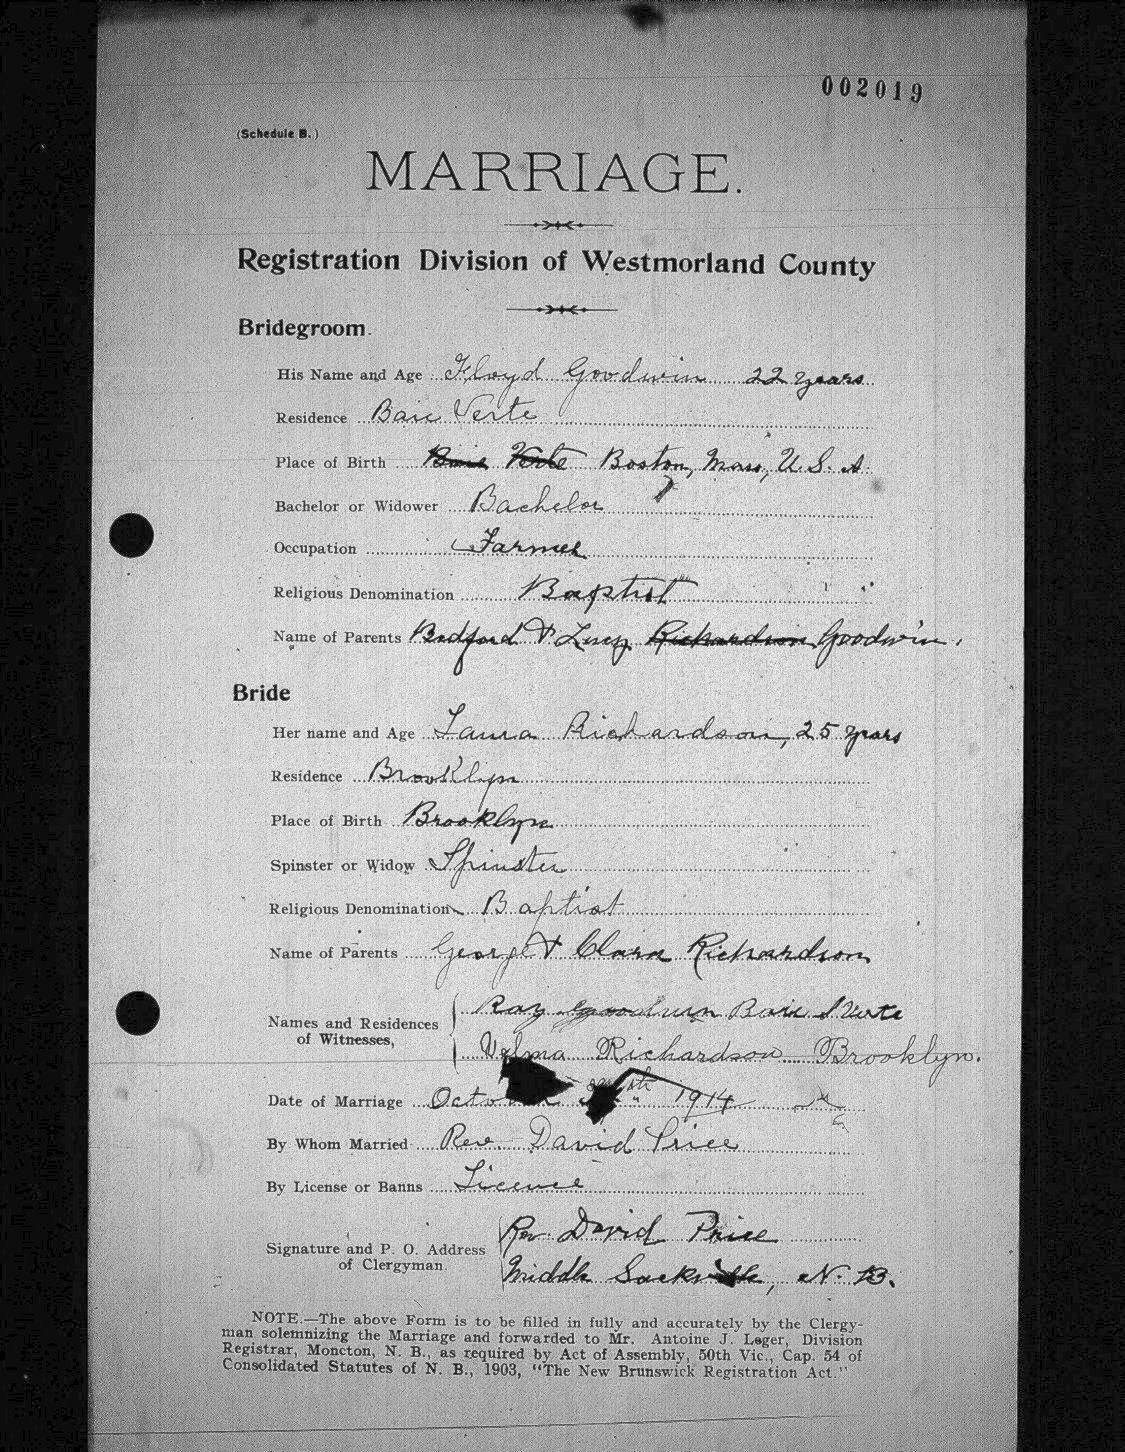 002019
(Schedule B.)
MARRIAGE.
Registration Division of Westmorland County
Bridegroom.
His Name and Age Floyd Goodwin 22 years
Residence Baie Verte
Place of Birth Baie Verte Boston, Mass, U. S. A.
Bachelor or Widower Bachelor
Occupation Farmer
Religious Denomination Baptist
Name of Parents Bedford & Lucy Richardson Goodwin.
Bride
Her name and Age Laura Richardson, 25 years
Residence Brooklyn
Place of Birth Brooklyn
Spinster or Widow Spinster
Religious Denomination Baptist
Name of Parents George & Clara Richardson
Names and Residences of Witnesses, Ray Goodwin Baie Verte
Velma Richardson Brooklyn.
Date of Marriage October 1914
By Whom Married Rev. David Price
By License or Banns Licence
Signature and P. O. Address of Clergyman. Rev. David Price
Middle Sackville, N. B.
NOTE.—The above Form is to be filled in fully and accurately by the Clergy-
man solemnizing the Marriage and forwarded to Mr. Antoine J. Leger, Division
Registrar, Moncton, N. B., as required by Act of Assembly, 50th Vic., Cap. 54 of
Consolidated Statutes of N. B., 1903, "The New Brunswick Registration Act."